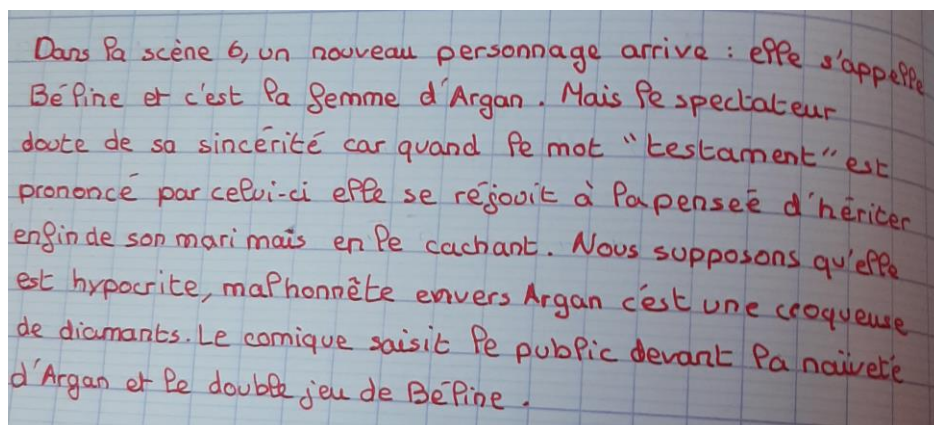 Dans la scène 6, un nouveau personnage arrive : elle s'appelle
Béline et c'est la femme d'Argan. Mais le spectateur
doute de sa sincérité car quand le mot "testament" est
prononcé par celui-ci elle se réjouit à la pensée d'hériter
enfin de son mari mais en le cachant. Nous supposons qu'elle
est hypocrite, malhonnête envers Argan c'est une croqueuse
de diamants. Le comique saisit le public devant la naïveté
d'Argan et le double jeu de Béline.